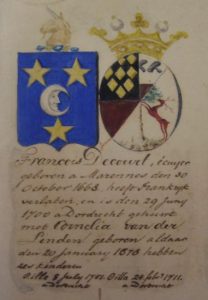 Francois Docourt, ecuyer
geboren a Marennes den 30
October 1663. heeft Frankryk
verlaten, en is den 29 Juny
1700 a Dordrecht gehuwt
met Cornelia van der
Linden geboren aldaar
den 20 january 1678 hebben
zes kinderen
8 july 1751. 28 feb. 1711.
a Dordrac a Dordrac